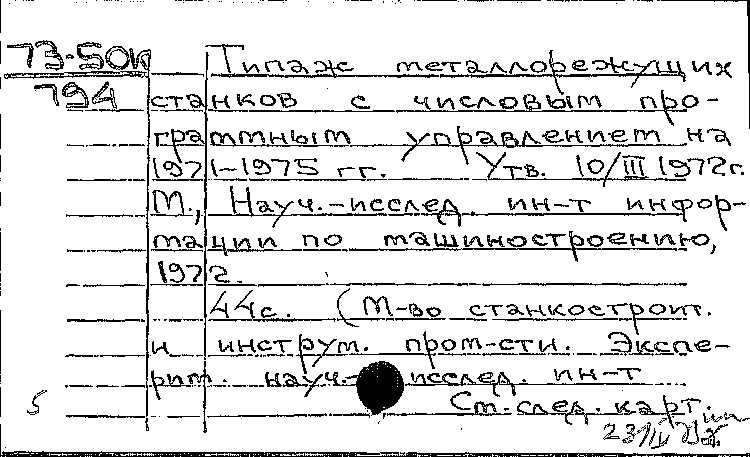 73-50к Типаж металлорежущих
794 станков с числовым про-
граммным управлением на
1971-1975 гг. Утв. 10/III 1972г.
М., Науч.-исслед. ин-т инфор-
мации по машиностроению,
1972.
44с. (М-во станкостроит.
и инструм. пром-сти. Экспе-
рим. науч.- исслед. ин-т
5 См. след. карт.